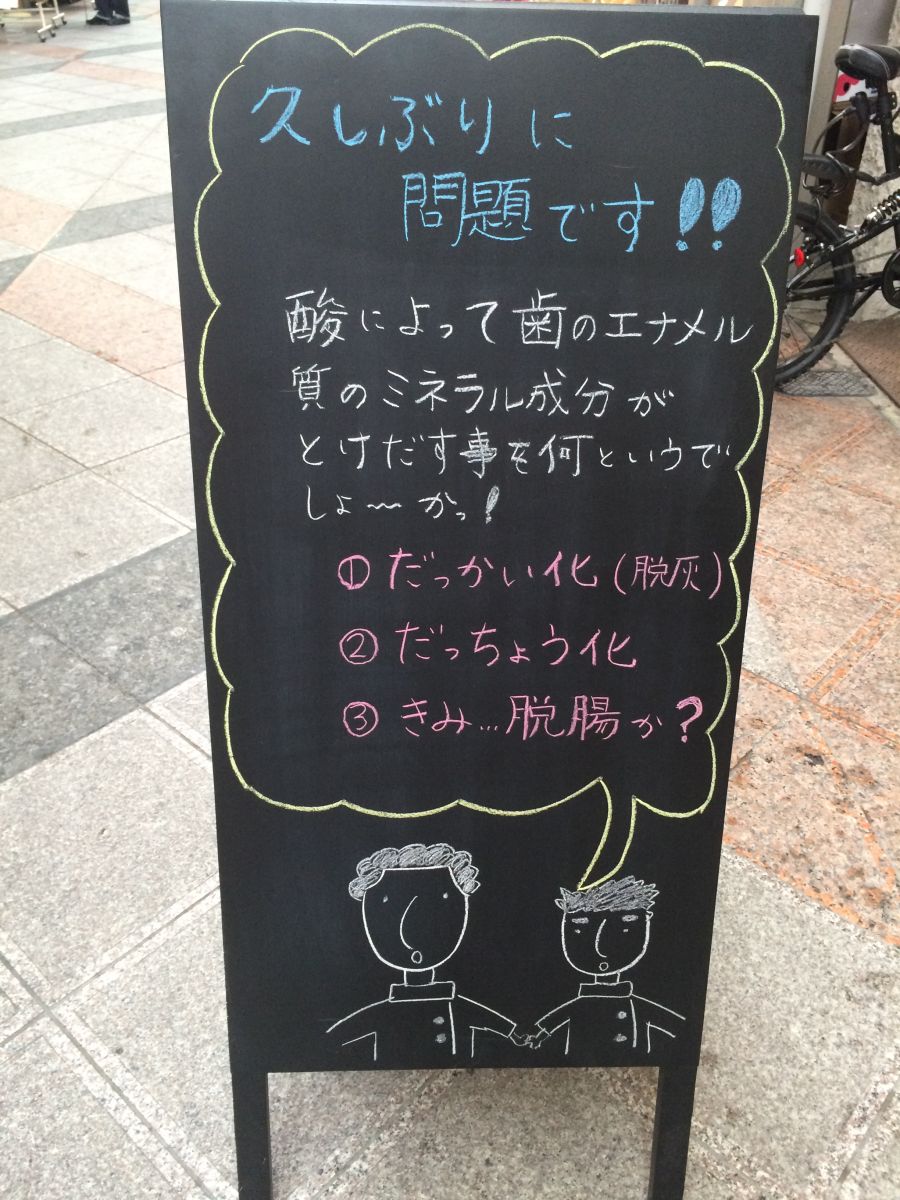 久しぶりに
問題です!!
酸によって歯のエナメル
質のミネラル成分が
とけだす事を何というで
しょ〜かっ!
① だっかい化(脱灰)
② だっちょう化
③ きみ…脱腸か?